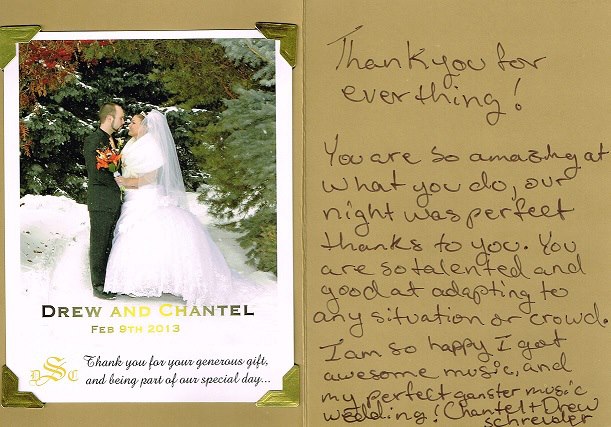 DREW AND CHANTEL
FEB 9TH 2013
D S C
Thank you for your generous gift,
and being part of our special day...
Thank you for
everthing!
You are so amazing at
what you do, our
night was perfect
thanks to you. You
are so talented and
good at adapting to
any situation or crowd.
I am so happy I got
awesome music, and
my perfect ganster music
wedding! Chantel + Drew
schreider